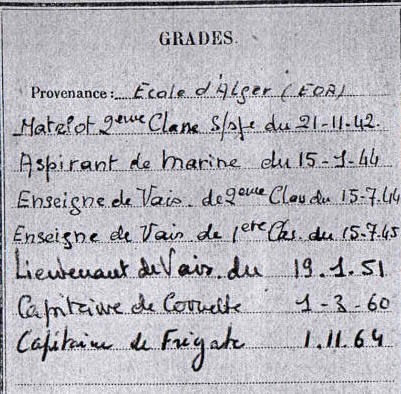 GRADES.
Provenance: École d'Alger (EOR)
Matelot 2eme Classe S/spe du 21-11-42.
Aspirant de marine du 15-1-44
Enseigne de Vais. de 2eme Clas du 15-7.44
Enseigne de Vais de 1ere Clas. du 15-7.45
Lieutenant de Vais. du 19.1.51
Capitaine de Corvette 1-3-60
Capitaine de Frégate 1.11.64